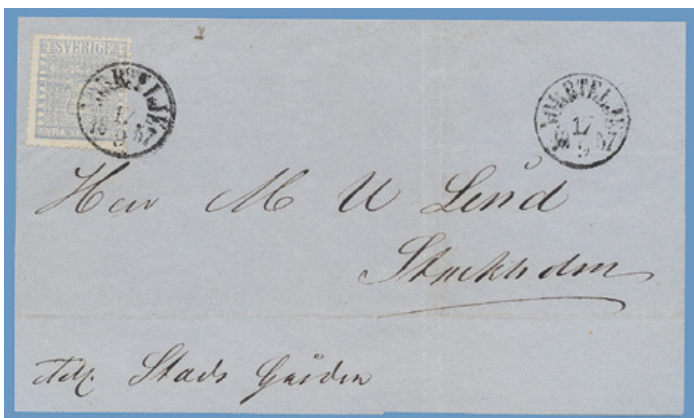 SVERIGE
FYRA
NORRTELJE
17
18 9 57
NORRTELJE
17
18 9 57
Herr M U Lind
Stockholm
Stads Gården